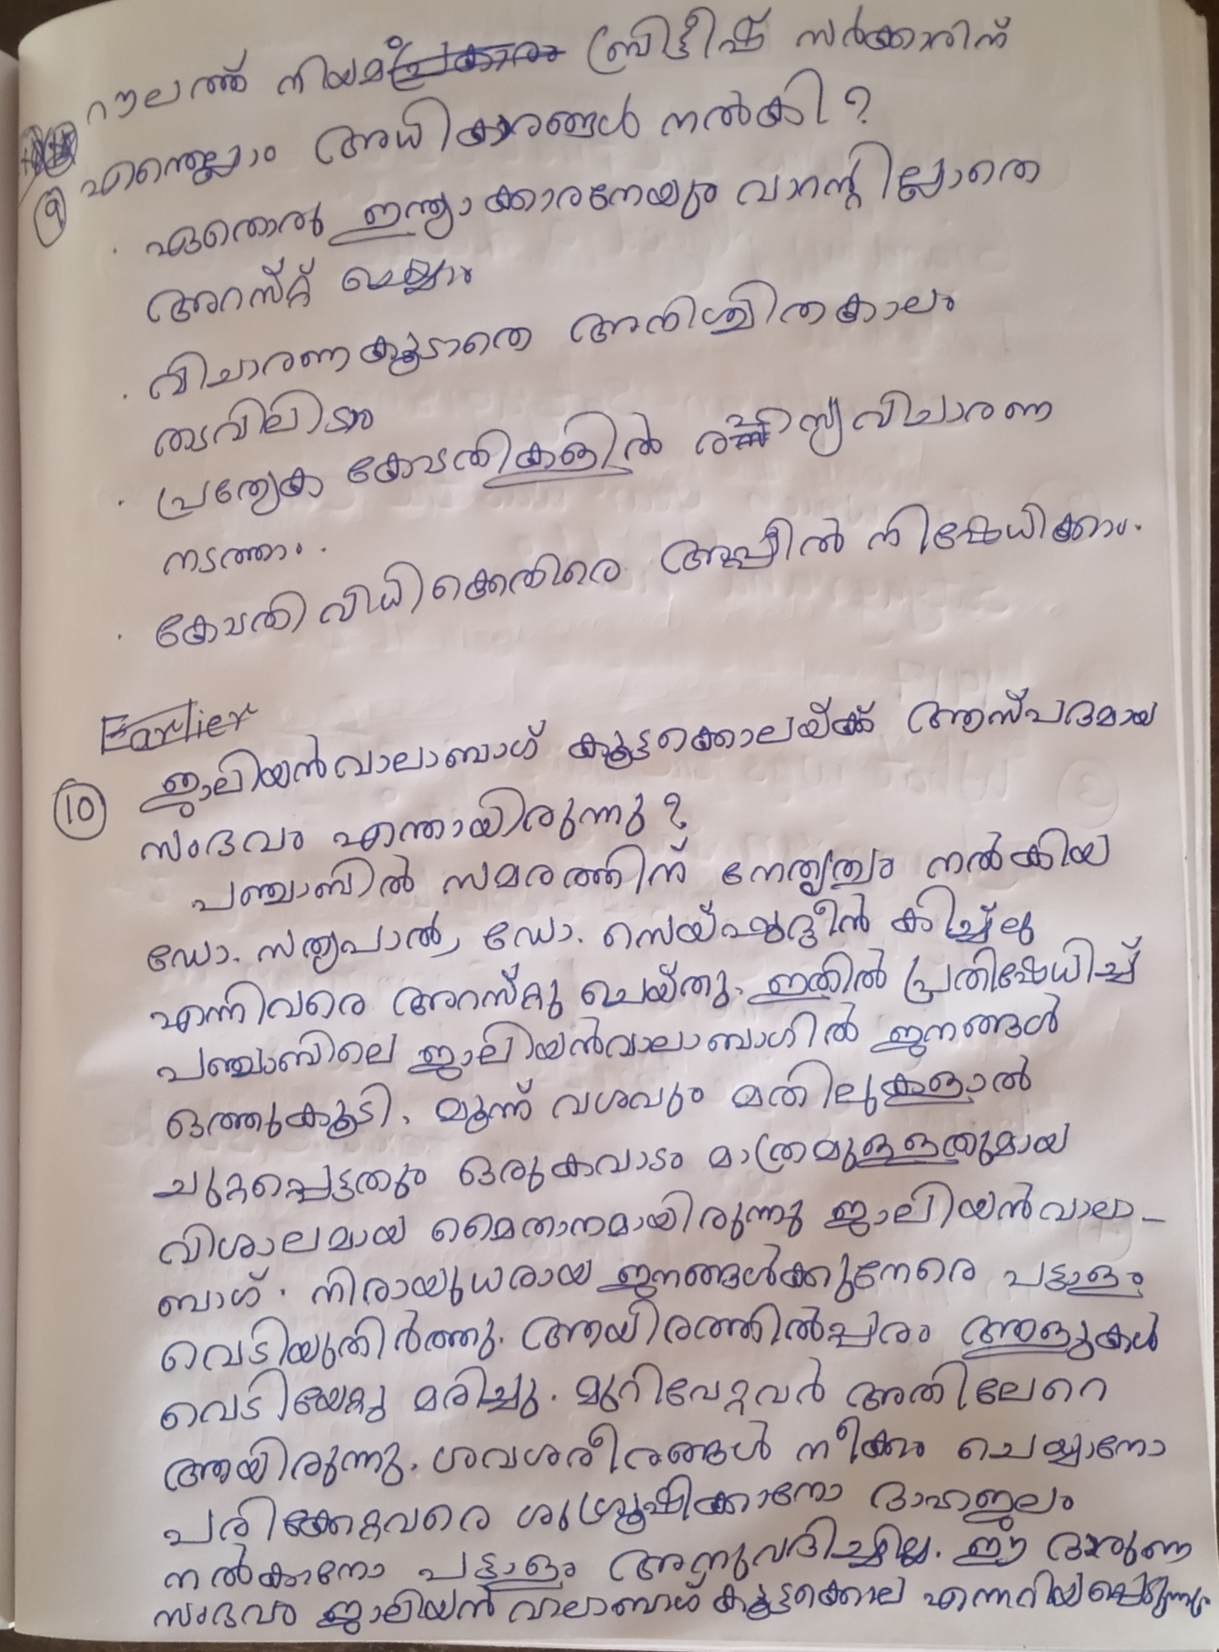 റൗലത്ത് നിയമം ബ്രിട്ടീഷ് സർക്കാരിന്
എന്തെല്ലാം അധികാരങ്ങൾ നൽകി?
9
· ഏതൊരു ഇന്ത്യാക്കാരനേയും വാറന്റില്ലാതെ
അറസ്റ്റ് ചെയ്യാം
· വിചാരണകൂടാതെ അനിശ്ചിതകാലം
തടവിലിടാം
· പ്രത്യേക കോടതികളിൽ രഹസ്യവിചാരണ
നടത്താം.
· കോടതിവിധിക്കെതിരെ അപ്പീൽ നിഷേധിക്കാം.
Earlier
10 ജാലിയൻവാലാബാഗ് കൂട്ടക്കൊലയ്ക്ക് ആസ്പദമായ
സംഭവം എന്തായിരുന്നു?
പഞ്ചാബിൽ സമരത്തിന് നേതൃത്വം നൽകിയ
ഡോ. സത്യപാൽ, ഡോ. സെയ്ഫുദ്ദീൻ കിച്ച്ലു
എന്നിവരെ അറസ്റ്റു ചെയ്തു. ഇതിൽ പ്രതിഷേധിച്ച്
പഞ്ചാബിലെ ജാലിയൻവാലാബാഗിൽ ജനങ്ങൾ
ഒത്തുകൂടി. മൂന്ന് വശവും മതിലുകളാൽ
ചുറ്റപ്പെട്ടതും ഒരുകവാടം മാത്രമുള്ളതുമായ
വിശാലമായ മൈതാനമായിരുന്നു ജാലിയൻവാലാ-
ബാഗ്. നിരായുധരായ ജനങ്ങൾക്കുനേരെ പട്ടാളം
വെടിയുതിർത്തു. ആയിരത്തിൽപ്പരം ആളുകൾ
വെടിയേറ്റു മരിച്ചു. മുറിവേറ്റവർ അതിലേറെ
ആയിരുന്നു. ശവശരീരങ്ങൾ നീക്കം ചെയ്യാനോ
പരിക്കേറ്റവരെ ശുശ്രൂഷിക്കാനോ ദാഹജലം
നൽകാനോ പട്ടാളം അനുവദിച്ചില്ല. ഈ ദാരുണ
സംഭവം ജാലിയൻ വാലാബാഗ് കൂട്ടക്കൊല എന്നറിയപ്പെടുന്നു